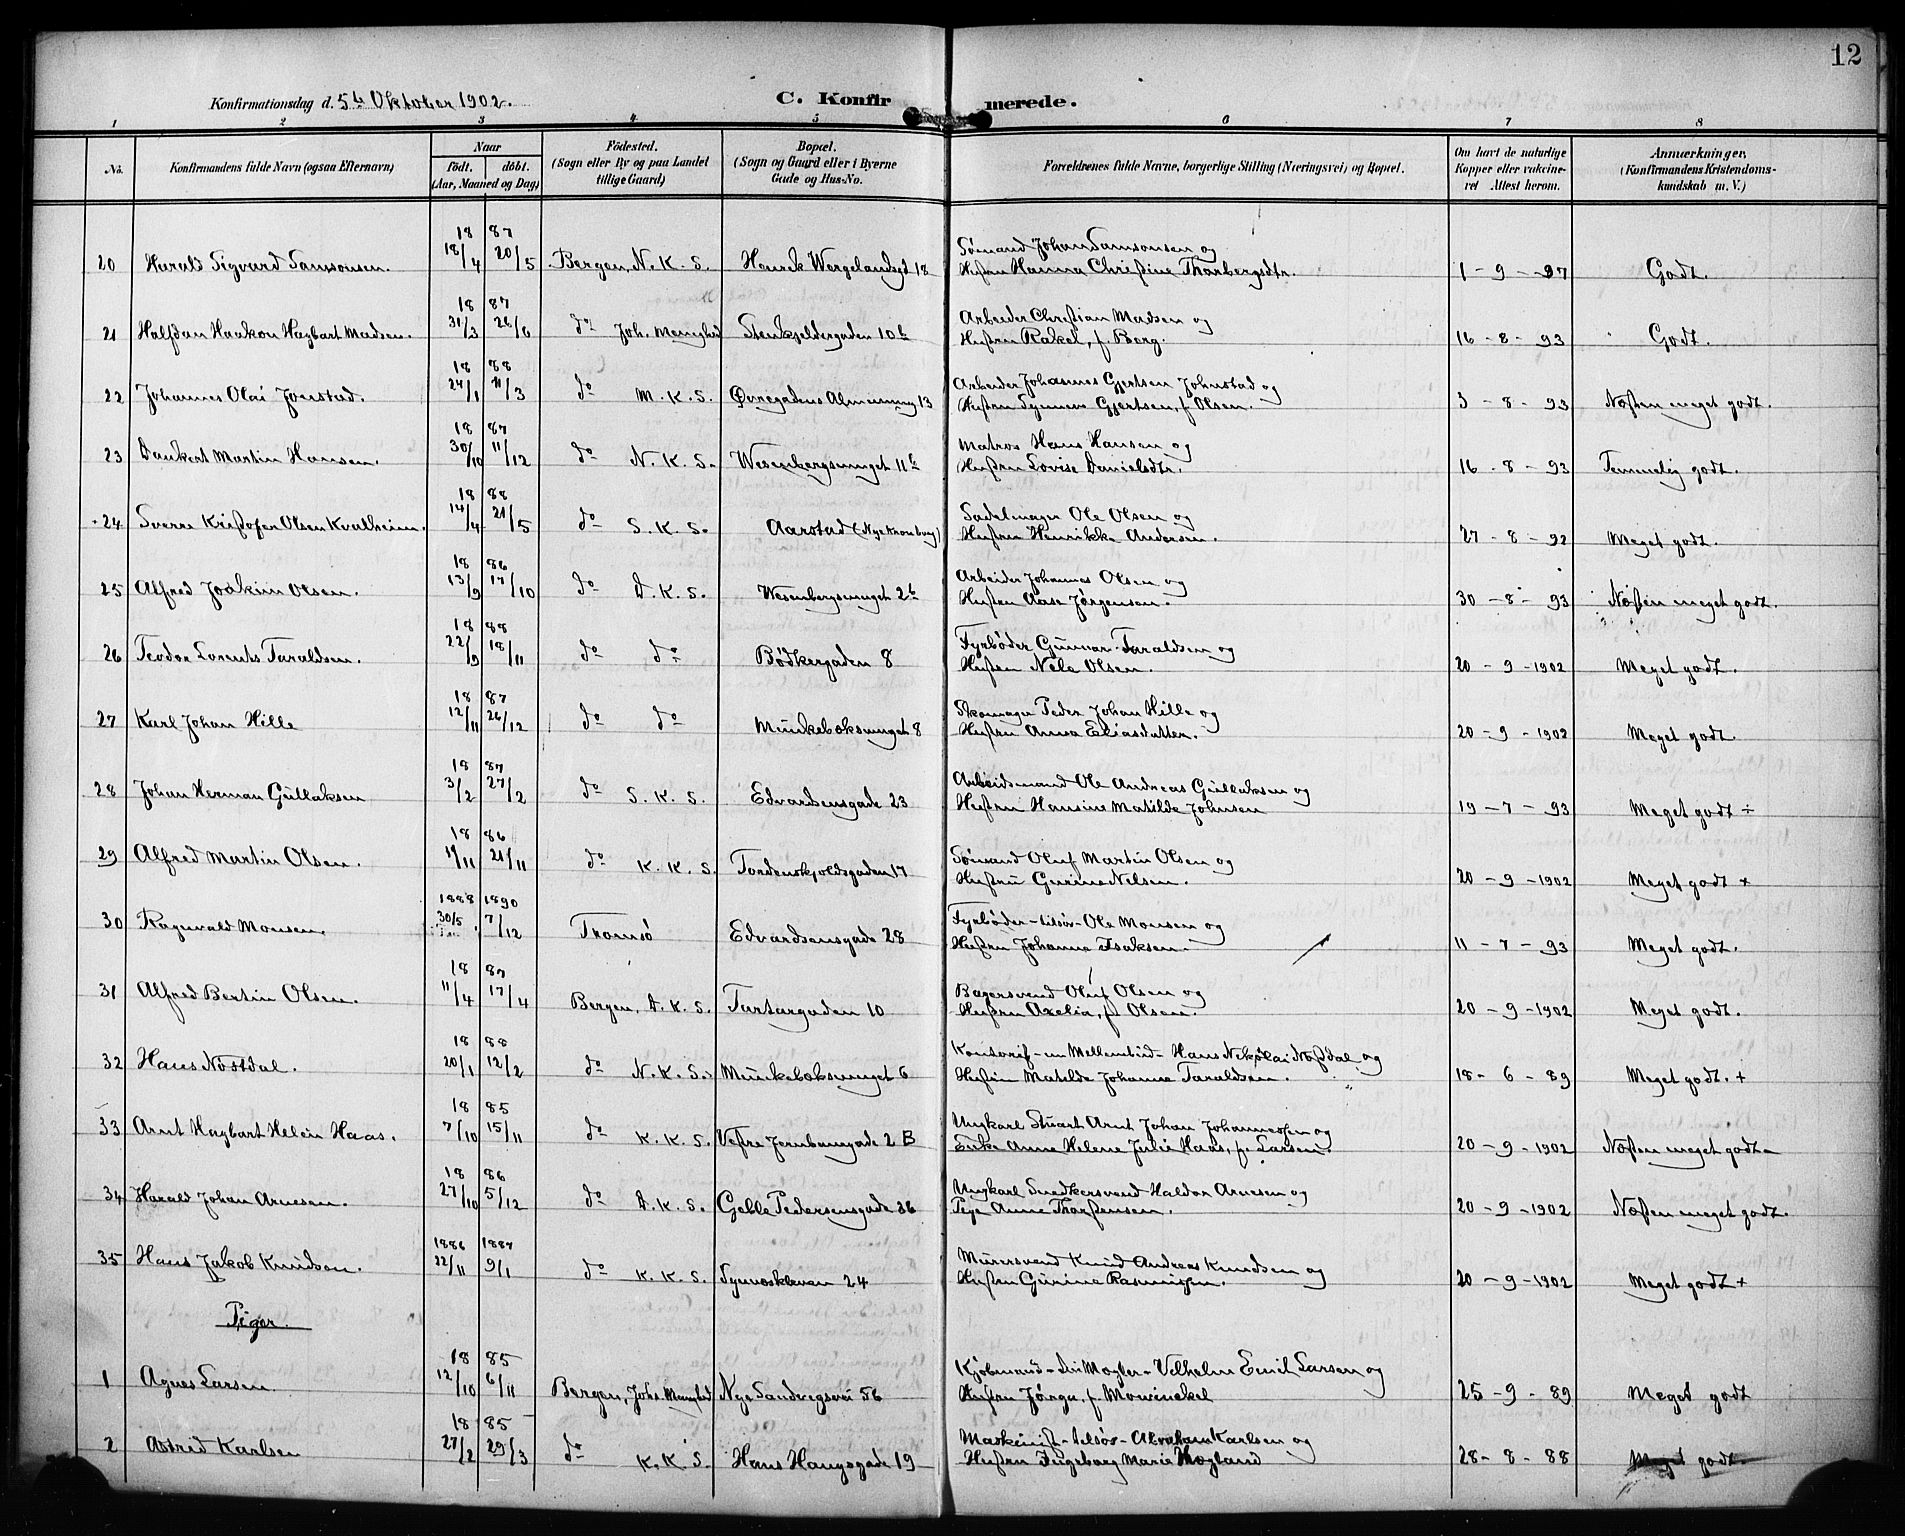 12
Konfirmationsdag d. 5te Oktober 1902.
C. Konfirmerede.
1 2 3 4 5 6 7 8
No. Konfirmandens fulde Navn (ogsaa Efternavn) Naar født. døbt. (Aar, Maaned og Dag) Fødested. (Sogn eller By og paa Landet tillige Gaard) Bopæl. (Sogn og Gaard eller i Byerne Gade og Hus-No. Forældrenes fulde Navne, borgerlige Stilling (Næringsvei) og Bopæl. Om havt de naturlige Kopper eller vakcineret Attest herom. Anmærkninger, (Konfirmandens Kristendomskundskab m. V.)
18 87 Sømand Johan Samsonsen og
20 Harald Sigvard Samsonsen. 18/4 20/5 Bergen, N. K. S. Henrik Wergelandsgd 18 Hustru Hanna Christine Thorbergsdtr. 1 - 9 - 97 Godt.
18 87 Arbeider Christian Madsen og
21 Halfdan Haakon Hagbart Madsen. 31/3 26/6 do Joh. Menighed Stenkjeldergaden 10b Hustru Rakel, f. Berg. 16 - 8 - 93 Godt.
18 88 Arbeider Johannes Gjertsen Johnstad og
22 Johannes Olai Jonstad. 24/1 11/3 do M. K. S. Øvregadens Almenning 13 Hustru Synneve Gjertsen, f. Olsen. 3 - 8 - 93 Næsten meget godt.
18 87 Matros Hans Hansen og
23 Dankert Martin Hansen. 30/10 11/12 do N. K. S. Wesenbergsmuget 11b Hustru Lovise Danielsdtr. 16 - 8 - 93 Temmelig godt.
18 88 Sadelmager Ole Olsen og
24 Sverre Kristofer Olsen Kvalheim. 14/4 21/5 do S. K. S. Aarstad (Nye Kronborg) Hustru Henrikke Andersen. 27 - 8 - 92 Meget godt.
18 86 Arbeider Johannes Olsen og
25 Alfred Joakim Olsen. 13/9 17/10 do D. K. S. Wesenbergsmuget 2b Hustru Aase Jørgensen. 30 - 8 - 93 Næsten meget godt.
18 88 Fyrbøder Gunnar Taraldsen og
26 Teodor Lorents Taraldsen. 22/9 18/11 do do Bødkergaden 8 Hustru Nela Olsen. 20 - 9 - 1902 Meget godt.
18 87 Skomager Peder Johan Hille og
27 Karl Johan Hille 12/11 26/12 do do Munkebæksmuget 8 Hustru Anna Eliasdatter. 20 - 9 - 1902 Meget godt.
18 87 Arbeidsmand Ole Andreas Gullaksen og
28 Johan Herman Gullaksen 3/2 27/2 do S. K. S. Edvardsensgade 23 Hustru Hansine Matilde Johnsen 19 - 7 - 93 Meget godt ÷
18 86 Sømand Oluf Martin Olsen og
29 Alfred Martin Olsen. 11/11 21/11 do K. K. S. Tordenskjoldsgaden 17 Hustru Gurine Nilsen. 20 - 9 - 1902 Meget godt +
1888 1890 Fyrbøder - tilsøs - Ole Monsen og
30 Ragnvald Monsen. 30/5 7/12 Tromsø Edvardsensgade 28 Hustru Johanna Isaksen. 11 - 7 - 93 Meget godt.
18 87 Bagersvend Oluf Olsen og
31 Alfred Bertin Olsen. 11/4 17/4 Bergen, D. K. S. Tartargaden 10 Hustru Axelia, f. Olsen. 20 - 9 - 1902 Meget godt.
18 88 Hans Nikolai Nøstdal og
32 Hans Nöstdal. 20/1 12/2 do N. K. S. Munkebæksmuget 6 Hustru Matilde Johanna Taraldsen. 18 - 6 - 89 Meget godt. +
18 85 Ungkarl Stuart Arnt Johan Johannessen og
33 Arnt Hagbart Helein Haas. 7/10 15/11 do K. K. S. Vestre Jernbanegade 2 B Enke Anne Helene Julie Haas, f. Larsen. 20 - 9 - 1902 Næsten meget godt -
18 86 Ungkarl Snedkersvend Haldor Arnesen og
34 Harald Johan Arnesen. 27/10 5/12 do D. K. S. Geble Pedersensgade 36 Pige Anne Thorstensen. 20 - 9 - 1902 Næsten meget godt.
1886 1887 Murersvend Knud Andreas Knudsen og
35 Hans Jakob Knudsen. 22/11 9/1 do K. K. S. Synneskleven 24 Hustru Gurine Rasmussen. 20 - 9 - 1902 Meget godt +
Piger.
18 85 Kjøbmand - Vilhelm Emil Larsen og
1 Agnes Larsen. 12/10 6/11 Bergen, Johs. Menighed Nye Sandvigsvei 56 Hustru Jørga, f. Mowinckel 25 - 9 - 89 Meget godt
18 85 Maskinist - tilsøs - Abraham Karlsen og
2 Astrid Karlsen 27/2 29/3 do K. K. S. Hans Haugesgade 19 Hustru Ingeborg Marie Hogland 28 - 8 - 88 Meget godt.